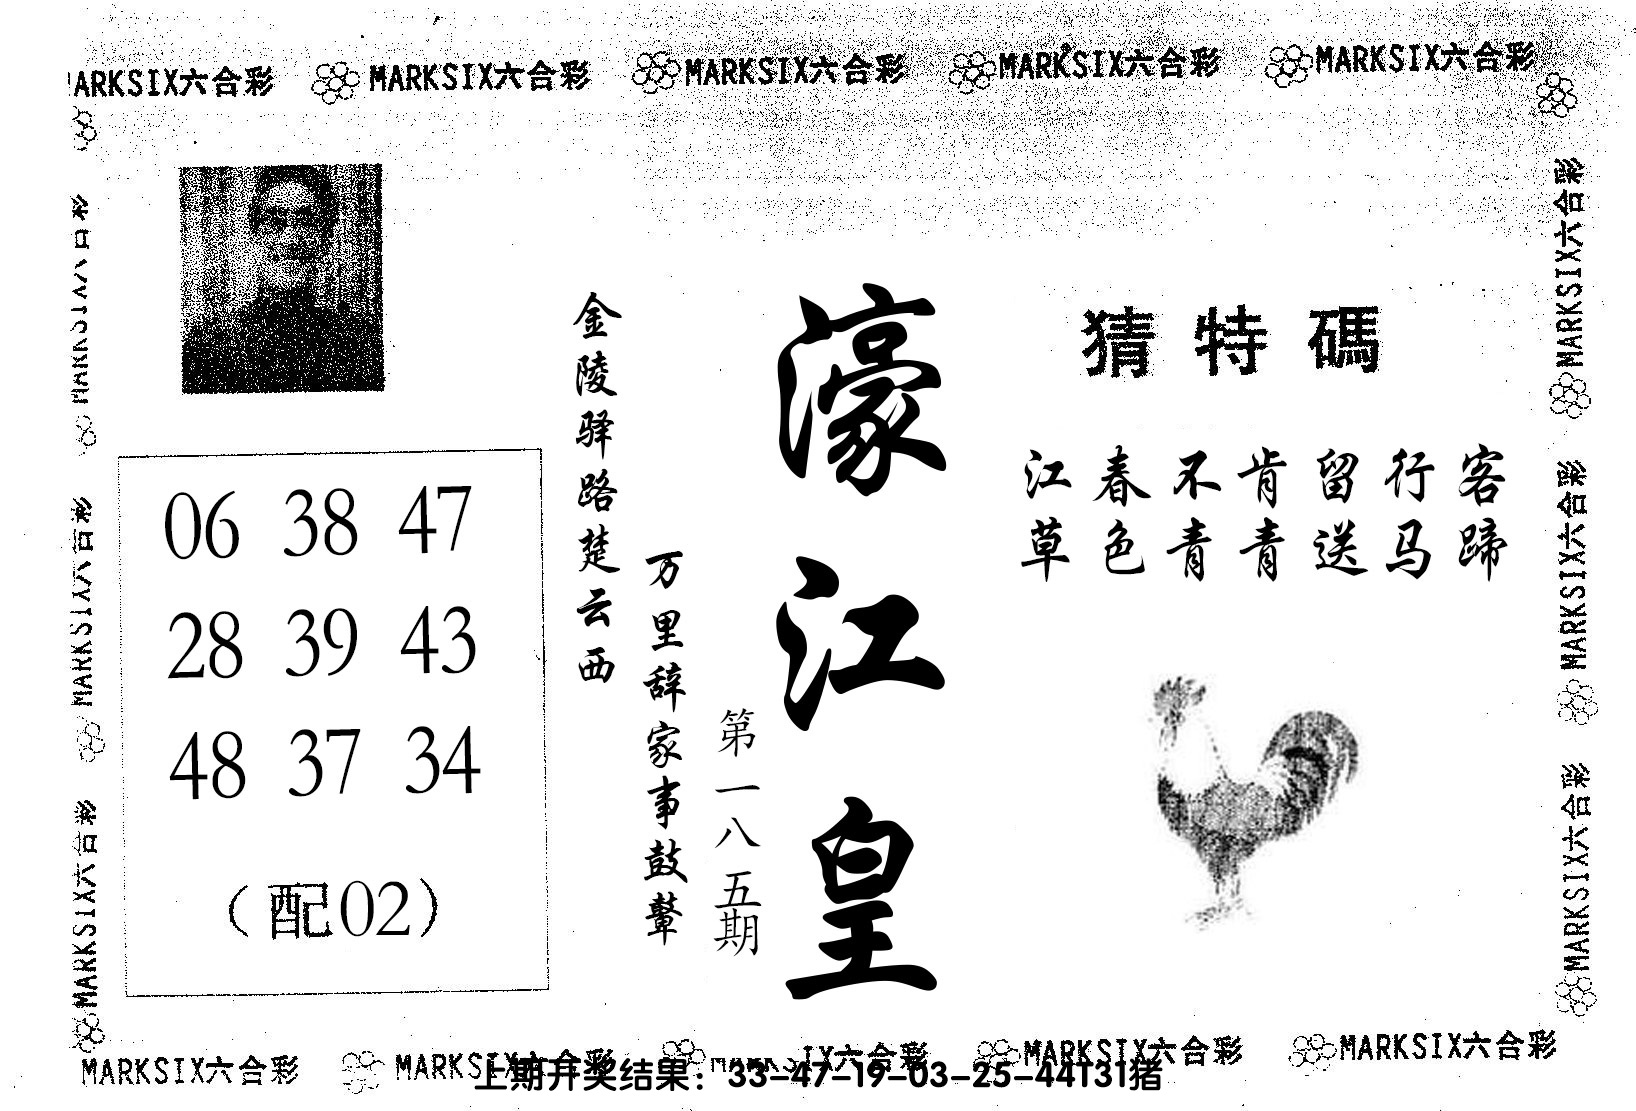 MARKSIX六合彩 MARKSIX六合彩 MARKSIX六合彩 MARKSIX六合彩 MARKSIX六合彩
MARKSIX六合彩
MARKSIX六合彩
MARKSIX六合彩
06 38 47
28 39 43
48 37 34
(配02)
金陵驿路楚云西
万里辞家事鼓鼙
第一八五期
濠江皇
猜特碼
江春不肯留行客
草色青青送马蹄
MARKSIX六合彩
MARKSIX六合彩
MARKSIX六合彩
MARKSIX六合彩 MARKSIX六合彩 MARKSIX六合彩 MARKSIX六合彩 MARKSIX六合彩
上期开奖结果：33-47-19-03-25-44T31猪